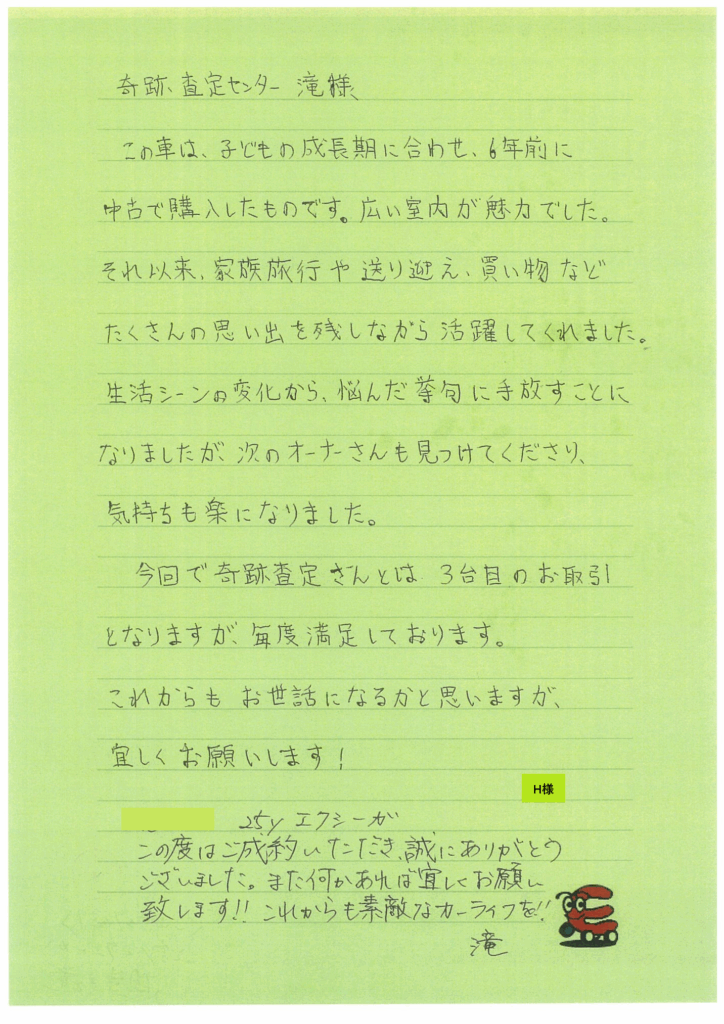 奇跡、査定センター 滝様、
この車は、子どもの成長期に合わせ、6年前に
中古で購入したものです。広い室内が魅力でした。
それ以来、家族旅行や送り迎え、買い物など
たくさんの思い出を残しながら活躍してくれました。
生活シーンの変化から、悩んだ挙句に手放すことに
なりましたが、次のオーナーさんも見つけてくださり、
気持ちも楽になりました。
今回で奇跡査定さんとは 3台目のお取引
となりますが、毎度満足しております。
これからも お世話になるかと思いますが、
宜しくお願いします!
H様
25y エクシーガ
この度はご成約いただき、誠にありがとう
ございました。また何かあれば宜しくお願い
致します!! これからも素敵なカーライフを!!
滝